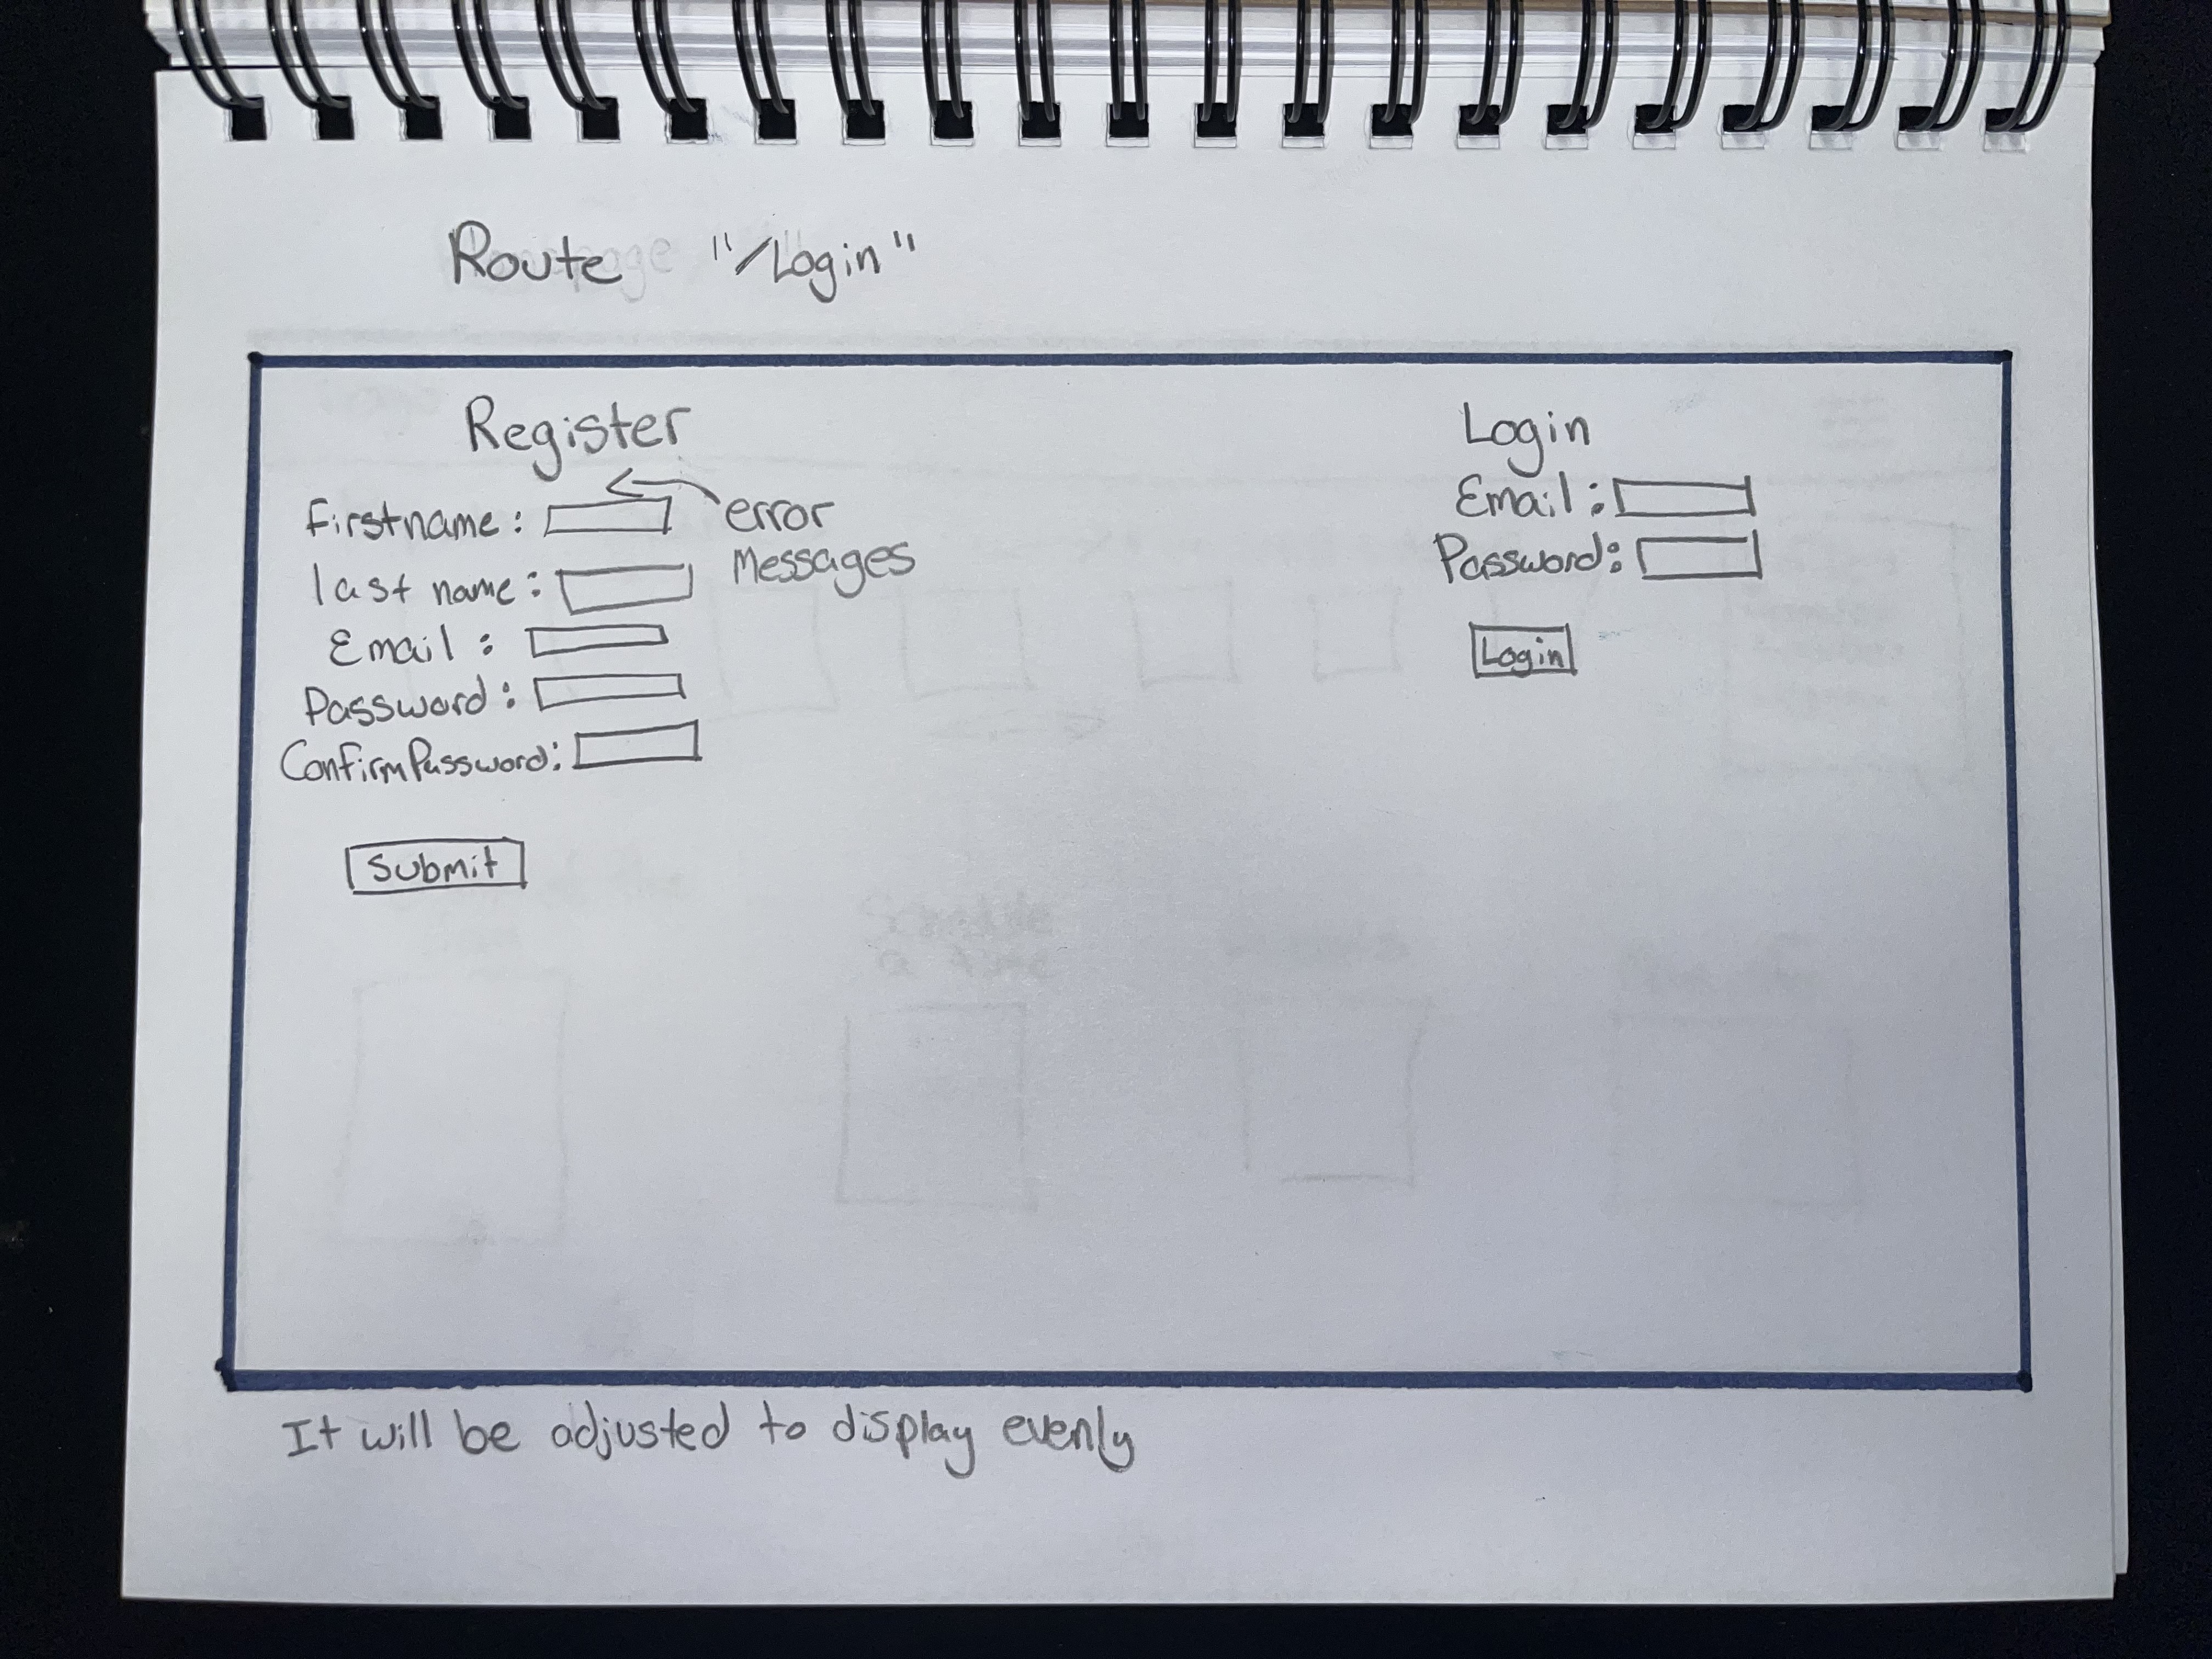 Route "/Login"
Register
firstname:
error
Messages
last name:
Email:
Password:
ConfirmPassword:
Submit
Login
Email:
Password:
Login
It will be adjusted to display evenly